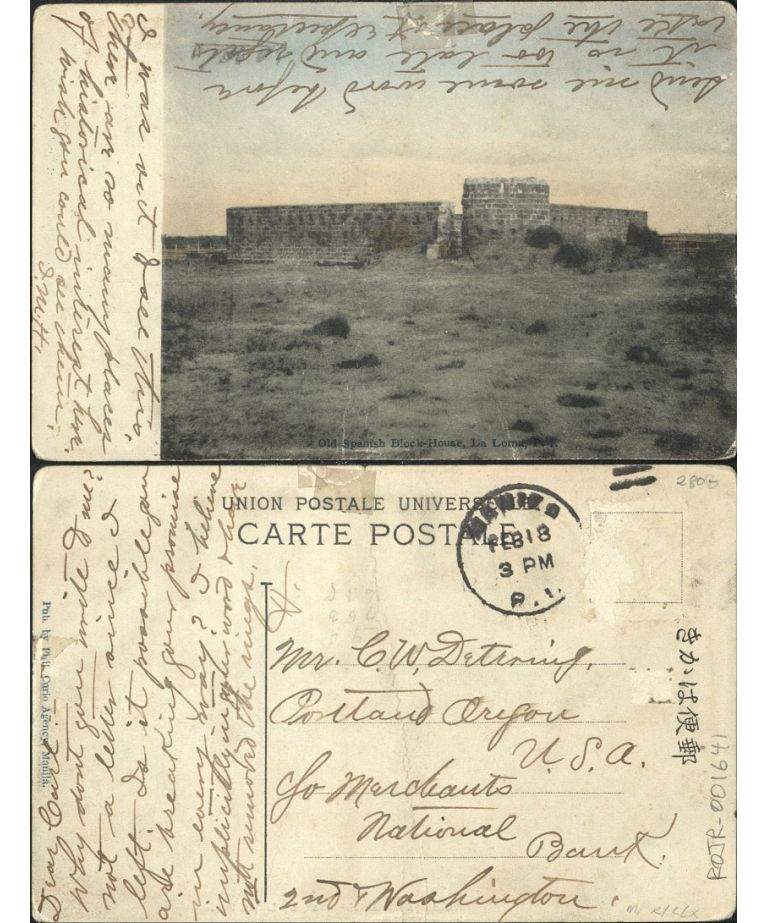 Send me some word before
it is too late and regrets
take the place of expectancy.
I was out & see this,
There are so many places
of historical interest here.
Wish you could see them,
Old Spanish Block-House, La Loma, P. I.
2805
UNION POSTALE UNIVERSELLE
CARTE POSTALE
MANILA
FEB 18
3 PM
P. I.
きかは便郵
Pub. by Phil. Curio Agency, Manila.
Dear
Why dont you write me?
not a letter since I
left. Is it possible you
are breaking your promise
in every way? I believe
implicitly in your word & have
not removed the rings.
H.
Mr. C. W. Detring,
Portland Oregon
U. S. A.
c/o Merchants
National
Bank.
2nd & Washington.
ROJR-001641